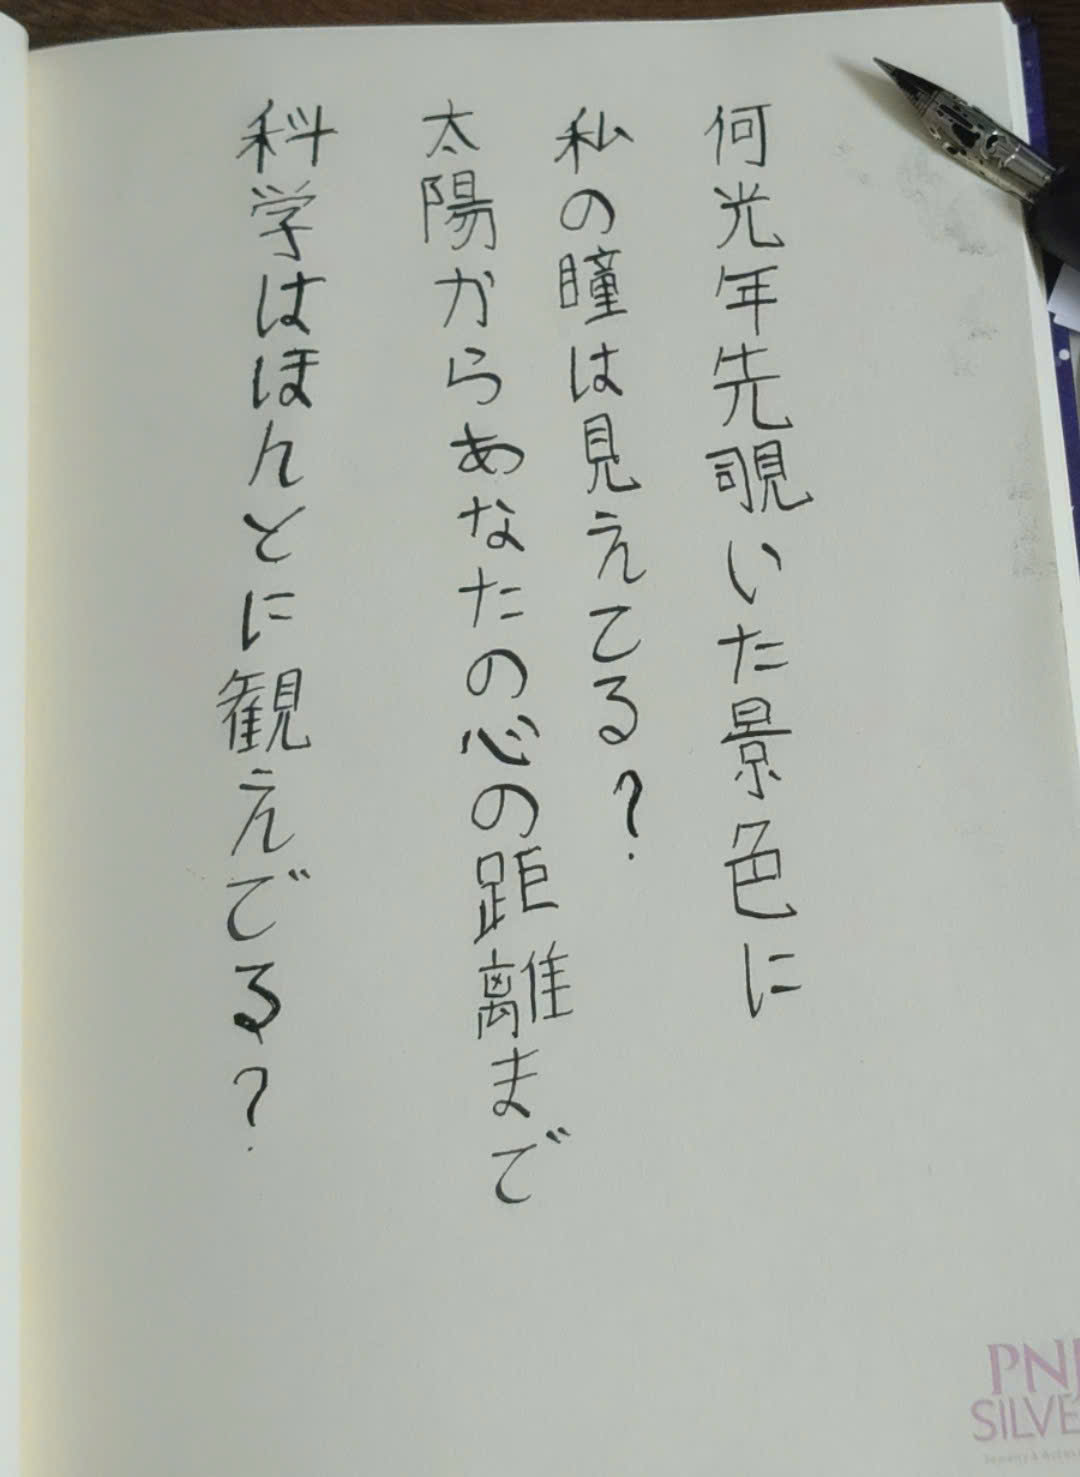 何光年先覗いた景色に
私の瞳は見えてる?
太陽からあなたの心の距離まで
科学はほんとに観えでる?
PNJ
SILVE